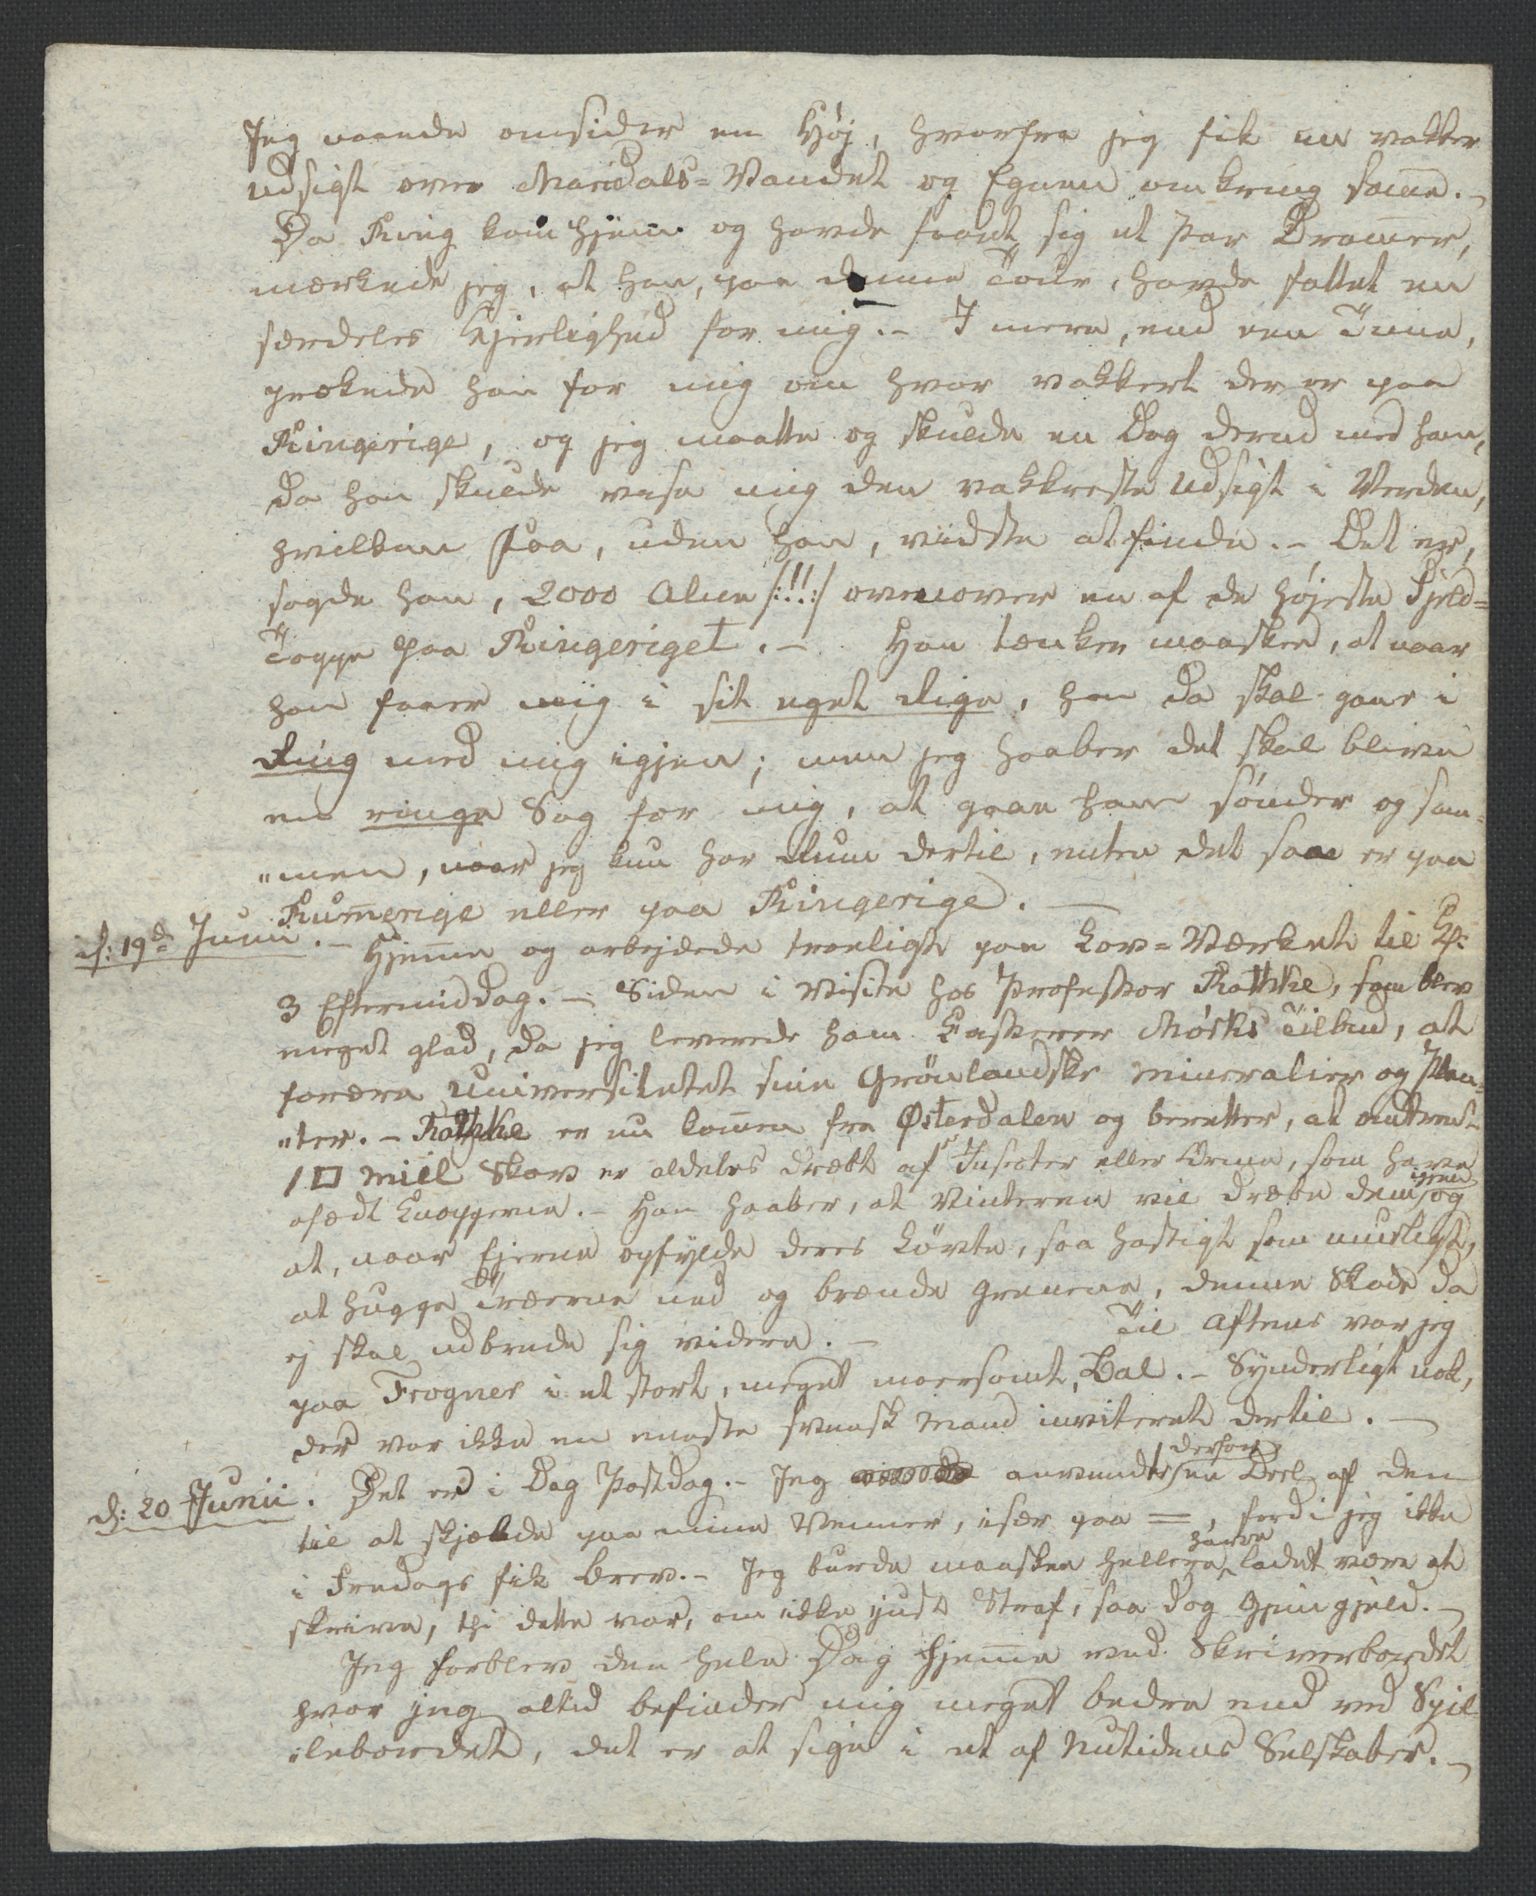 Jeg naaede omsider en Høj, hvorfra jeg fik en vakker
Udsigt over Maridals-Vandet og Egnen omkring samme. –
Da Ring kom hjem og havde faaet sig et Par Drammer,
mærkede jeg, at han, paa denne Tour, havde fattet en
særdeles Kjerlighed for mig. – I mere, end een Time,
prækede han for mig om hvor vakkert der er paa
Ringerige, og jeg maatte og skulde en Dag derud med ham,
da han skulde vise mig den vakkreste Udsigt i Verden,
hvilken Faa, uden han, vidste at finde. – Det er,
sagde han, 2000 Alne /:!!:/ ovenover en af de højeste Fjeld-
Toppe paa Ringeriget. – Han tænker maaskee, at naar
han faaer mig i sit eget Rige, han da skal gaae i
Ring med mig igjen; men jeg haaber det skal blive
en ringe Sag for mig, at gaae ham sönder og sam-
"men, naar jeg kun har Rum dertil, enten det saa er paa
Rummerige eller paa Ringerige. –
d: 19de Junii. – Hjemme og arbejdede troeligt paa Lov-Værket til Kl:
3 Eftermiddag. – Siden i Visite hos Professor Rathke, som blev
meget glad, da jeg leverede ham Kasserer Mörks Tilbud, at
forære Universitetet sine Grönlandske Mineralier og Plan-
"ter. – Rathke er nu kommen fra Østerdalen og beretter, at omtrent
1 □ Miil Skov er aldeles dræbt af Insecter eller Orme, som have
afædt Knopperne. – Han haaber, at Vinteren vil dræbe dem igjen og
at, naar Ejerne opfylde deres Löfte, saa hastigt som mueligt,
at hugge Træerne ned og brænde Grenene, denne Skade da
ej skal udbrede sig videre. – Til Aftens var jeg
paa Frogner i et stort, meget moersomt, Bal. – Synderligt nok,
der var ikke en eneste svensk Mand inviteret dertil. –
d: 20 Junii. Det er i Dag Postdag. – Jeg anvendte derfor en Deel af den
til at skjælde paa mine Venner, især paa =, fordi jeg ikke
i Fredags fik Brev. – Jeg burde maaskee hellere have ladet være at
skrive, thi dette var, om ikke just Straf, saa dog Gjengjeld. –
Jeg forblev den hele Dag hjemme ved Skriverbordet
hvor jeg altid befinder mig meget bedre end ved Spil-
"lebordet, det er at sige i et af Nutidens Selskaber. –